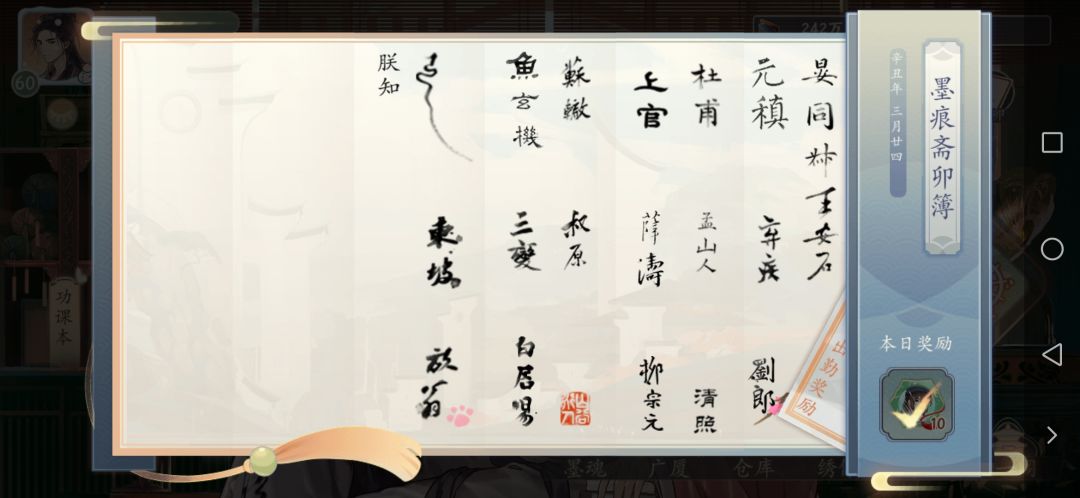 墨痕斋卯簿
辛丑年 三月廿四
本日奖励
10
出勤奖励
晏同叔
王安石
元稹
弃疾
劉郎
杜甫
孟山人
清照
上官
薛濤
柳宗元
蘇轍
叔原
魚玄機
三變
白居易
東坡
放翁
朕知
60
242万
功课本
墨魂
广厦
仓库